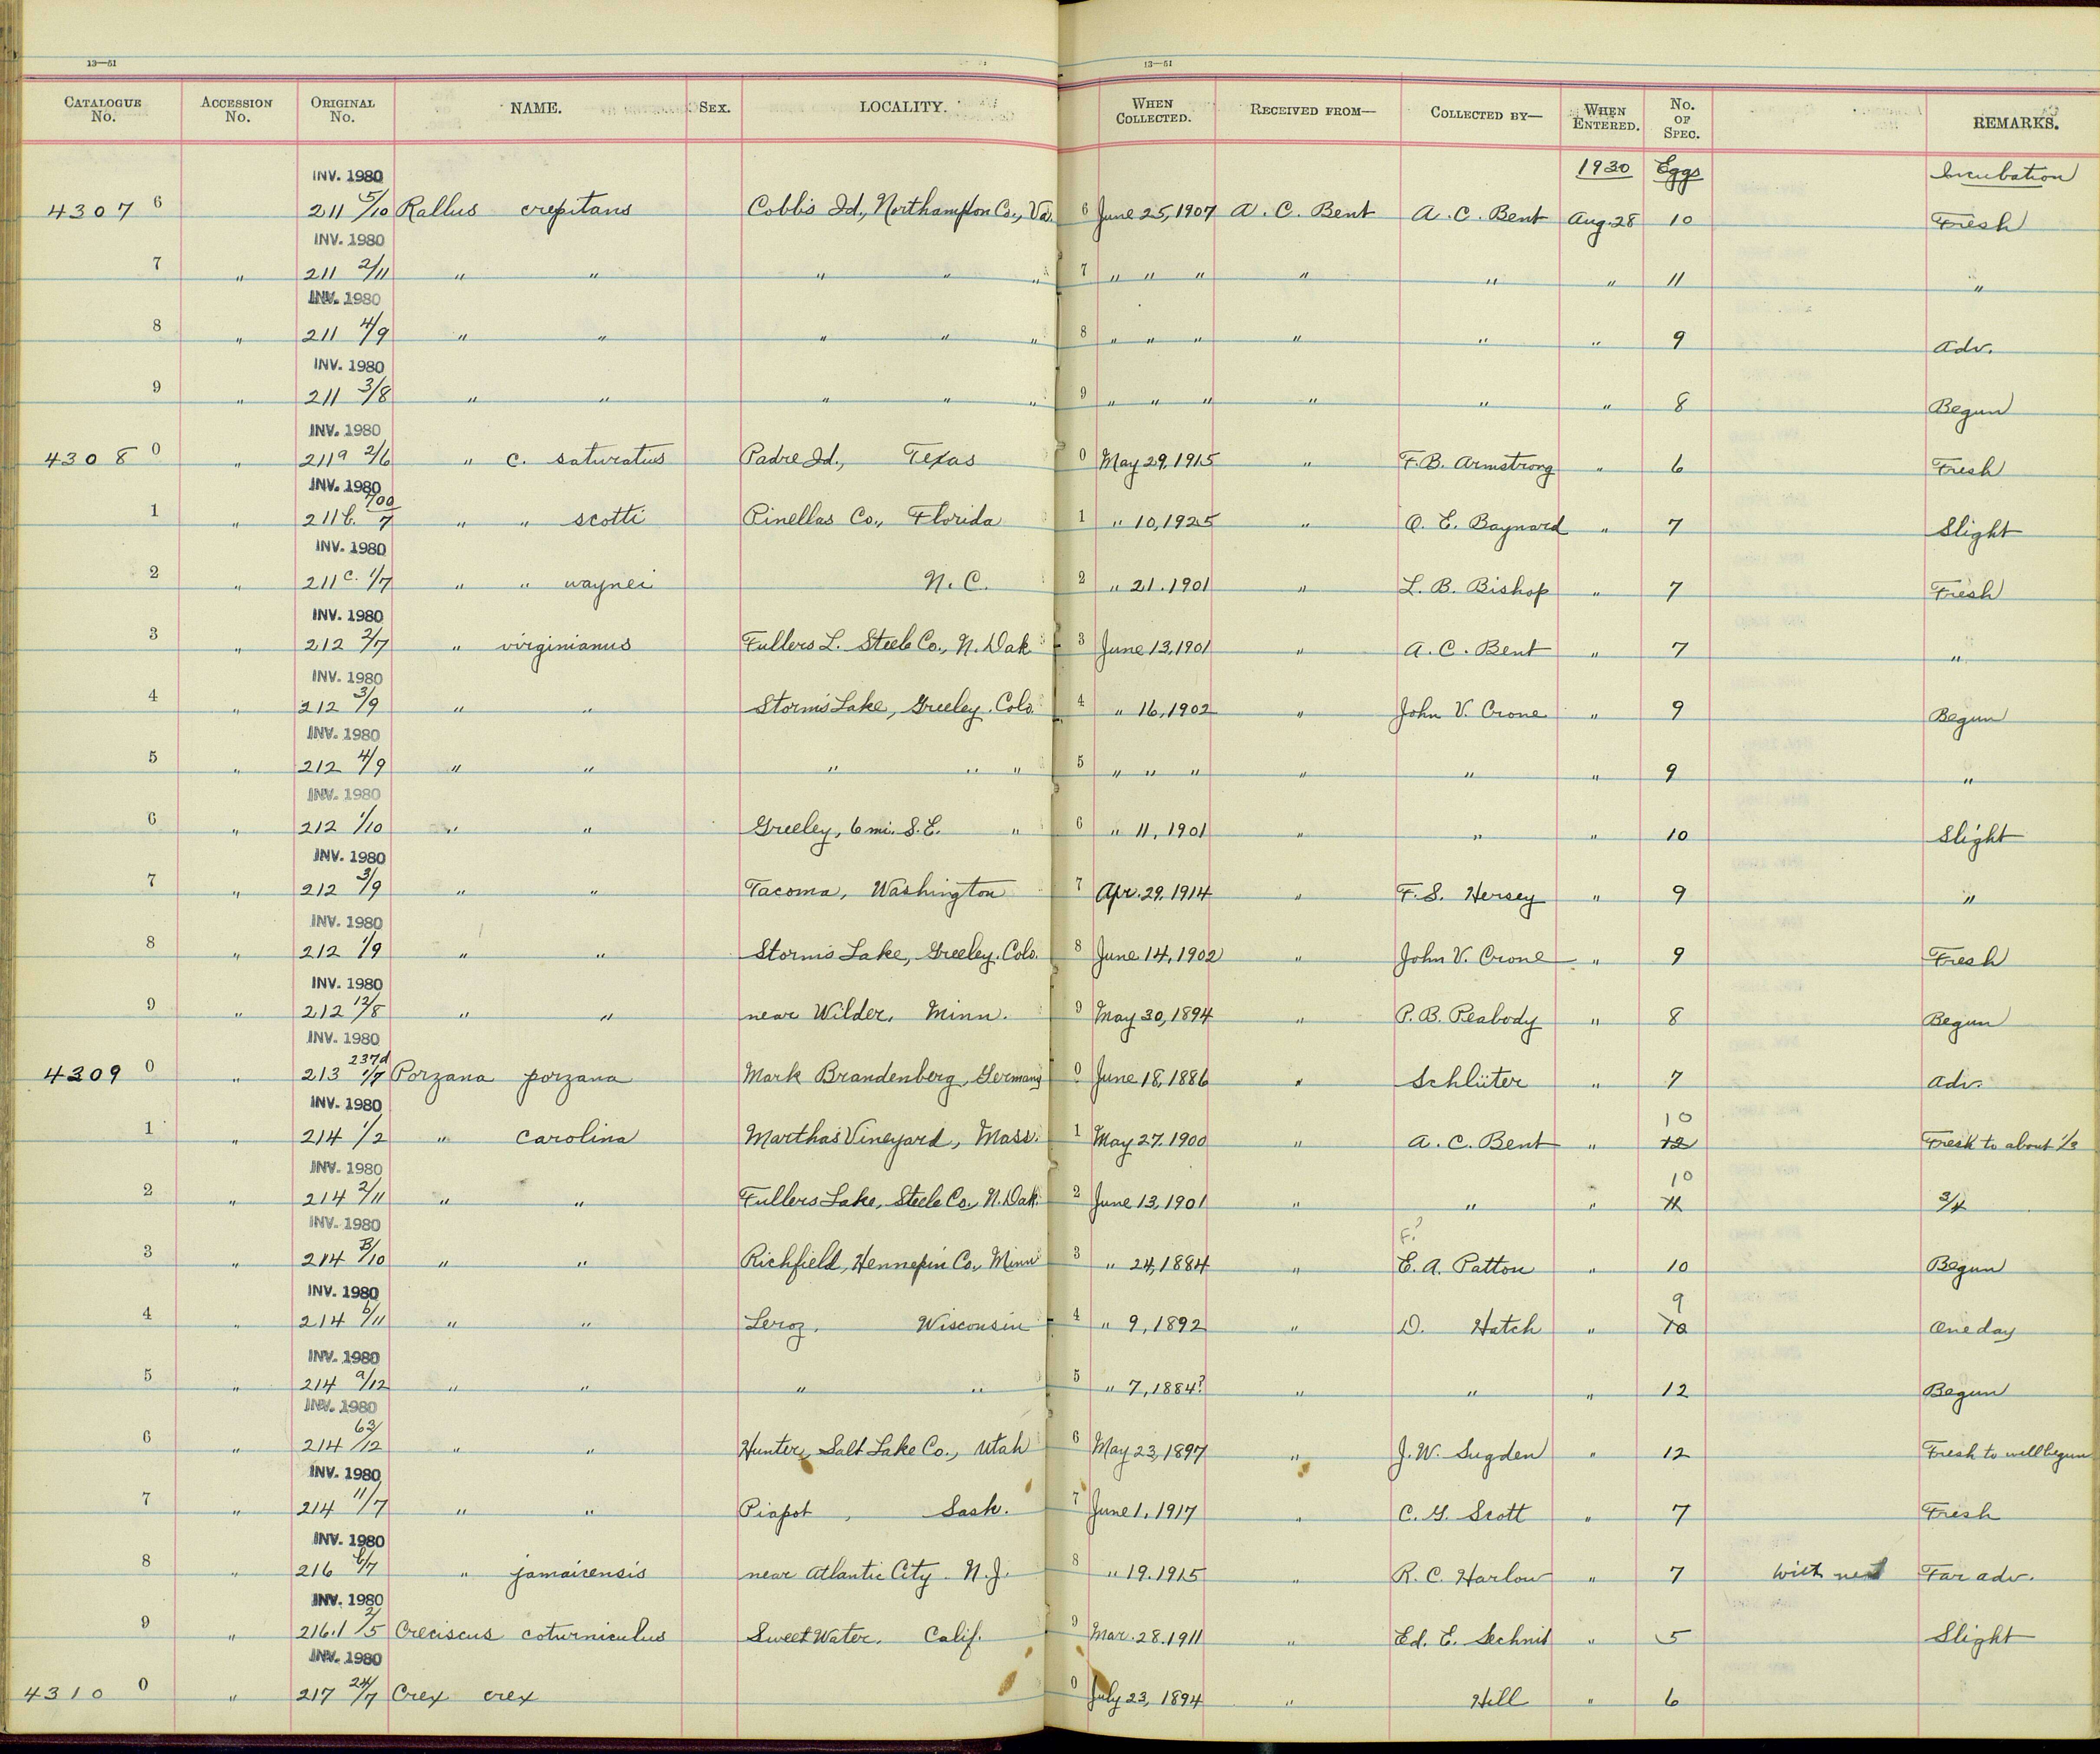 13—51 13—51
CATALOGUE No. ACCESSION No. ORIGINAL No. NAME. SEX. LOCALITY. WHEN COLLECTED. RECEIVED FROM— COLLECTED BY— WHEN ENTERED. No. OF SPEC. REMARKS.
INV. 1980 1930 Eggs Incubation
4307 6 211 5/10 Rallus crepitans Cobb's Id., Northampton Co., Va. 6 June 25, 1907 A. C. Bent A. C. Bent Aug. 28 10 Fresh
INV. 1980
7 " 211 2/11 " " " " " 7 " " " " " " 11 "
INV. 1980
8 " 211 4/9 " " " " " 8 " " " " " " 9 Adv.
INV. 1980
9 " 211 3/8 " " " " " 9 " " " " " " 8 Begun
INV. 1980
4308 0 " 211a 2/6 " c. saturatus Padre Id., Texas 0 May 29, 1915 " F. B. Armstrong " 6 Fresh
INV. 1980
1 " 211b. 700/7 " " scotti Pinellas Co., Florida 1 " 10, 1925 " O. E. Baynard " 7 Slight
INV. 1980
2 " 211c. 1/7 " " waynei N. C. 2 " 21. 1901 " L. B. Bishop " 7 Fresh
INV. 1980
3 " 212 2/7 " virginianus Fullers L. Steele Co., N. Dak. 3 June 13, 1901 " A. C. Bent " 7 "
INV. 1980
4 " 212 3/9 " " Storm's Lake, Greeley. Colo. 4 " 16, 1902 " John V. Crone " 9 Begun
INV. 1980
5 " 212 4/9 " " " " " 5 " " " " " " 9 "
INV. 1980
6 " 212 1/10 " " Greeley, 6 mi. S. E. " 6 " 11, 1901 " " " 10 Slight
INV. 1980
7 " 212 3/9 " " Tacoma, Washington 7 Apr. 29, 1914 " F. S. Hersey " 9 "
INV. 1980
8 " 212 1/9 " " Storm's Lake, Greeley. Colo. 8 June 14, 1902 " John V. Crone " 9 Fresh
INV. 1980
9 " 212 12/8 " " near Wilder, Minn. 9 May 30, 1894 " P. B. Peabody " 8 Begun
INV. 1980
237d
4309 0 " 213 1/7 Porzana porzana Mark Brandenberg, Germany 0 June 18, 1886 " Schlüter " 7 Adv.
INV. 1980 10
1 " 214 1/2 " carolina Martha's Vineyard, Mass. 1 May 27. 1900 " A. C. Bent " 12 Fresh to about 1/3
INV. 1980 10
2 " 214 2/11 " " Fullers Lake, Steele Co., N. Dak. 2 June 13, 1901 " " " 11 3/4
INV. 1980 F.?
3 " 214 B/10 " " Richfield, Hennepin Co., Minn 3 " 24, 1884 " E. A. Patton " 10 Begun
INV. 1980 9
4 " 214 b/11 " " Leroy, Wisconsin 4 " 9, 1892 " D. Hatch " 10 One day
INV. 1980
5 " 214 a/12 " " " " 5 " 7, 1884? " " " 12 Begun
INV. 1980
6 " 214 63/12 " " Hunter, Salt Lake Co., Utah 6 May 23, 1897 " J. W. Sugden " 12 Fresh to well begun
INV. 1980
7 " 214 11/7 " " Piapot, Sask. 7 June 1, 1917 " C. G. Scott " 7 Fresh
INV. 1980
8 " 216 6/7 " jamaicensis near Atlantic City. N. J. 8 " 19. 1915 " R. C. Harlow " 7 With nest Far adv.
INV. 1980
9 " 216.1 2/5 Creciscus coturniculus Sweet Water, Calif. 9 Mar. 28. 1911 " Ed. E. Sechrist " 5 Slight
INV. 1980
4310 0 " 217 24/7 Crex crex 0 July 23, 1894 " Hill " 6